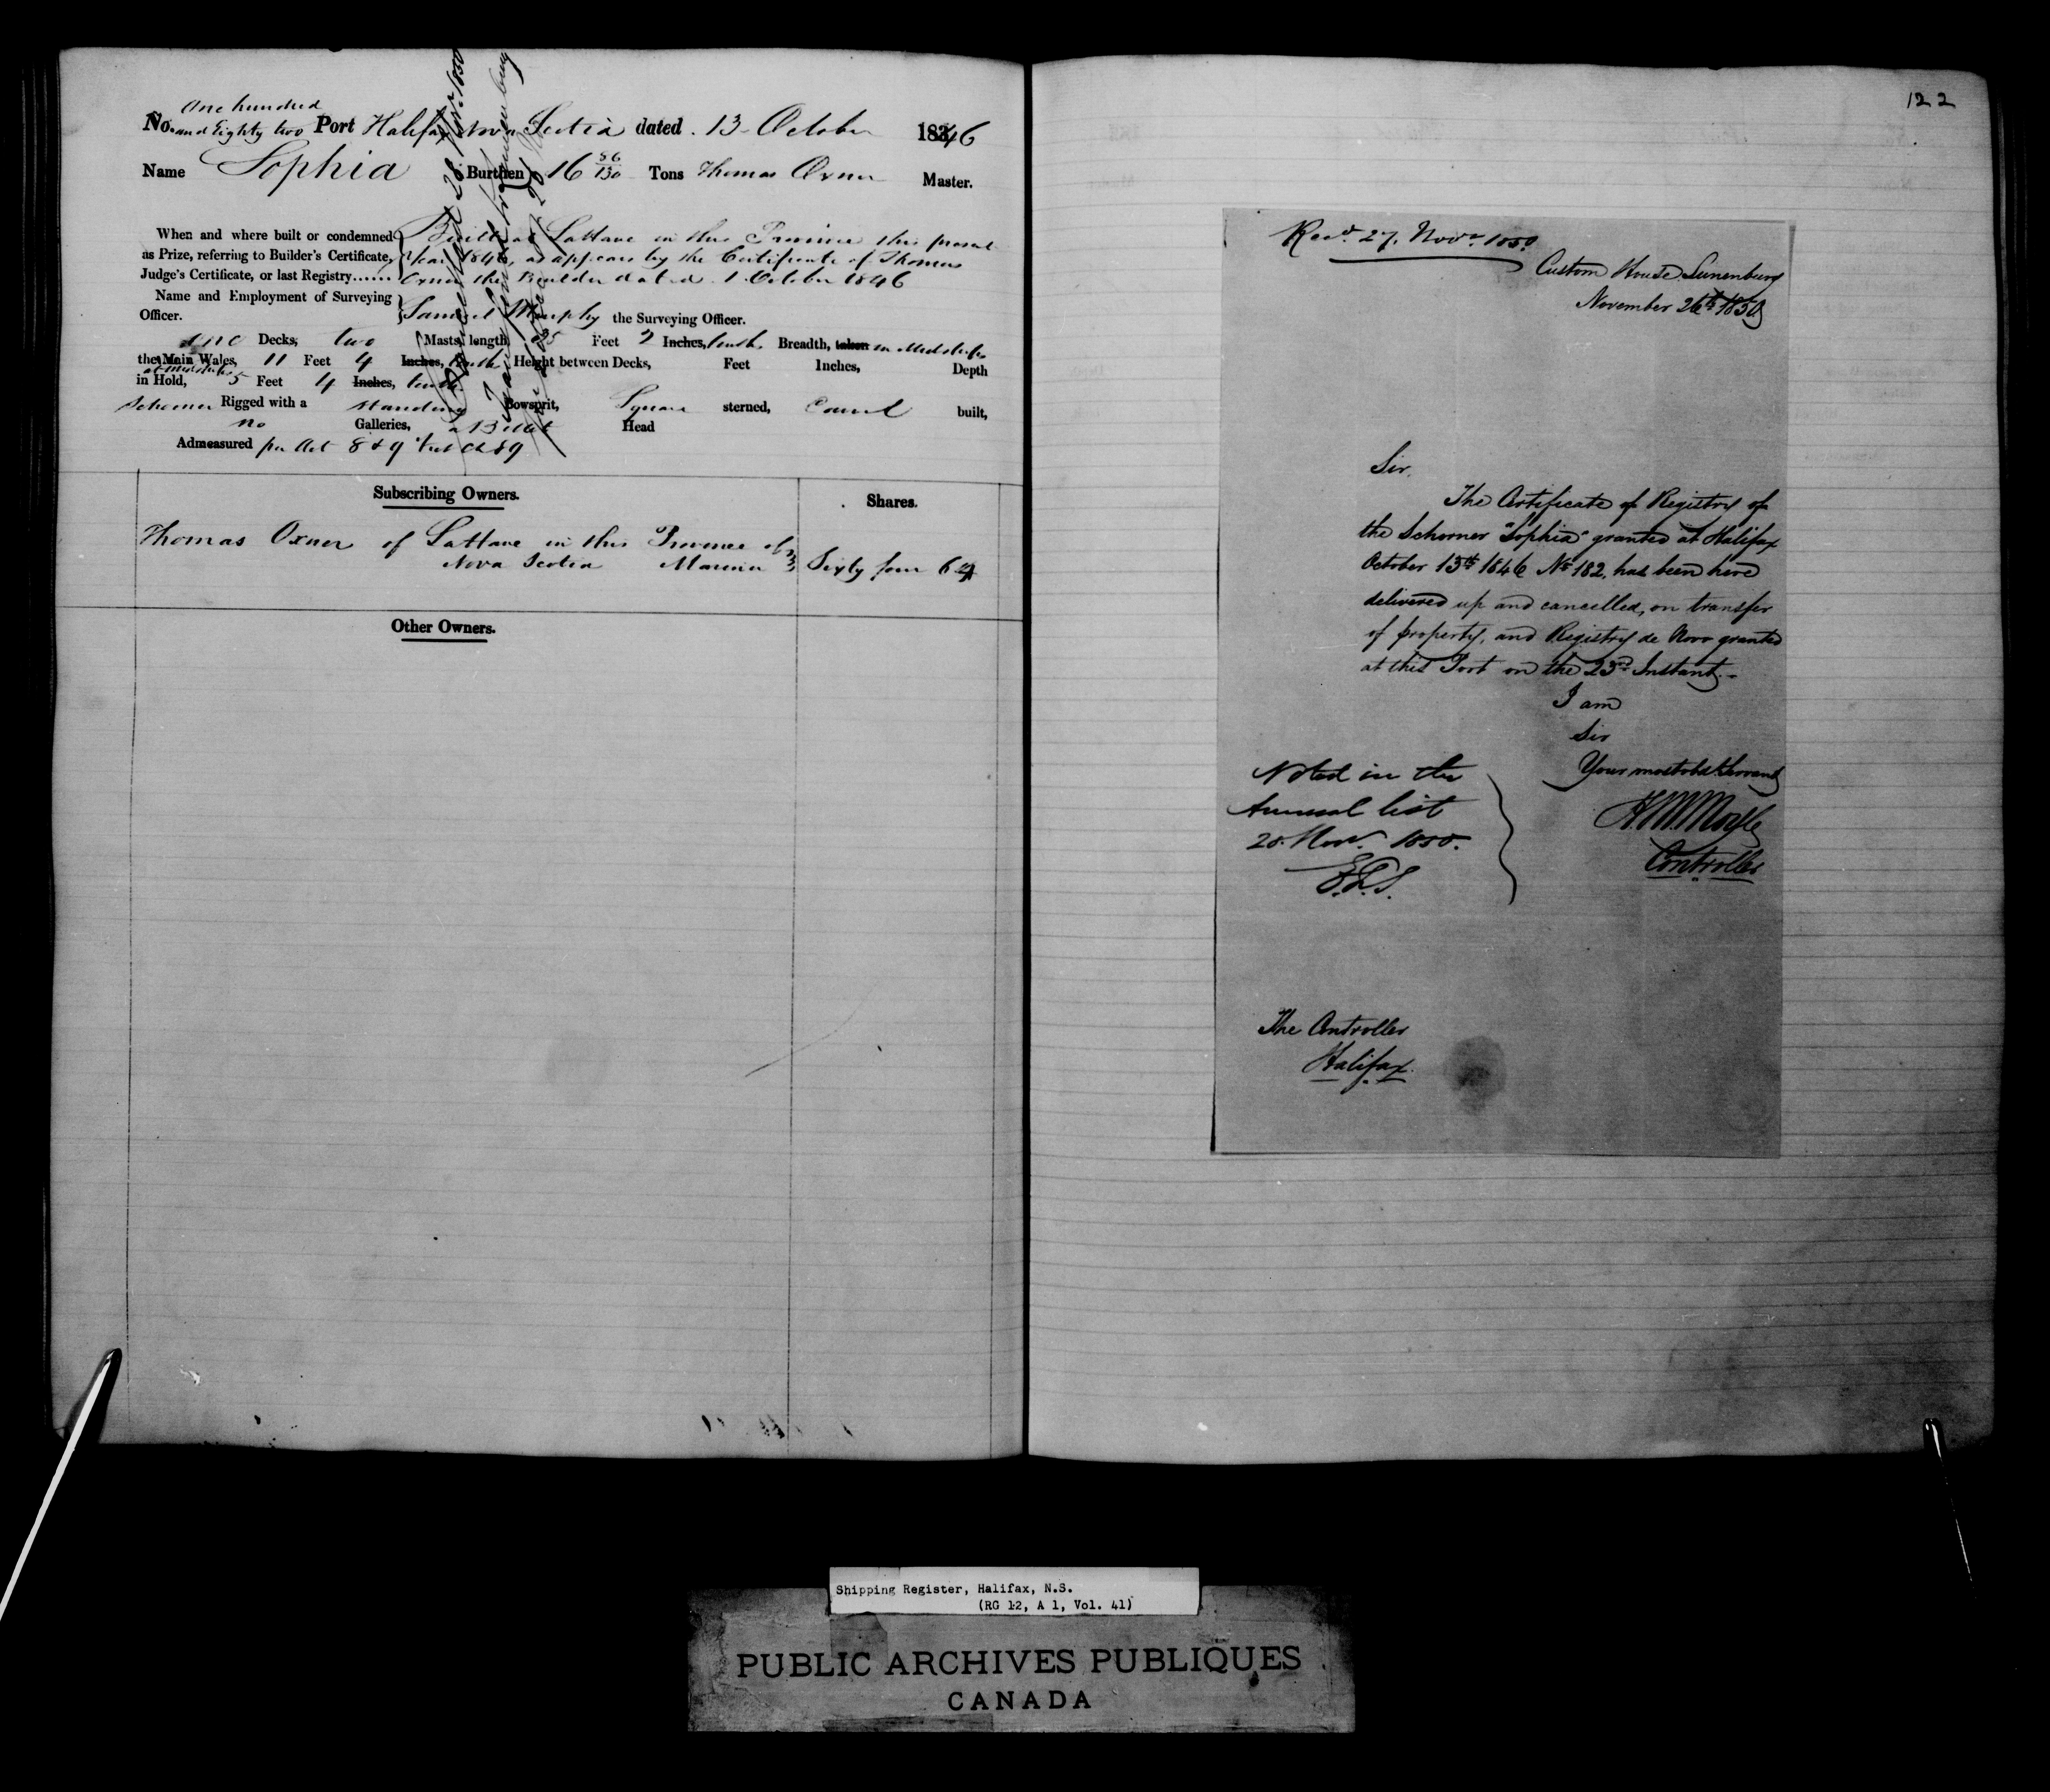 One hundred
No. and Eighty two Port Halifax Nova Scotia dated 13 October 1846
Name Sophia Burthen 16 56/130 Tons Thomas Oxner Master.
When and where built or condemned Built at LaHave in this Province this present
as Prize, referring to Builder's Certificate, Year 1846, as appears by the Certificate of Thomas
Judge's Certificate, or last Registry...... Oxner the Builder dated 1 October 1846
Name and Employment of Surveying
Officer. Samuel Murphy the Surveying Officer.
one Decks, two Masts, length 35 Feet Inches, tenths Breadth, taken in Midships
the Main Wales, 11 Feet 4 Inches, tenths Height between Decks, Feet Inches, Depth
at midships
in Hold, 5 Feet 4 Inches, tenths
Schooner Rigged with a standing Bowsprit, Square sterned, Carvel built,
no Galleries, a Billet Head
Admeasured per Act 8 & 9 Vict Ch 89
Subscribing Owners. Shares.
Thomas Oxner of LaHave in this Province of
Nova Scotia Mariner Sixty four 64
Other Owners.
122
Recd. 27. Novr. 1850.
Custom House Lunenburg
November 26th 1850
Sir,
The Certificate of Registry of
the Schooner "Sophia" granted at Halifax
October 13th 1846 No 182, has been here
delivered up and cancelled, on transfer
of property, and Registry de Novo granted
at this Port on the 23rd Instant.-
I am
Sir
Your most obdt Servant
Controller
Noted in the
Annual list
28 Novr. 1850.
The Controller
Halifax.
Shipping Register, Halifax, N.S.
(RG 12, A 1, Vol. 41)
PUBLIC ARCHIVES PUBLIQUES
CANADA